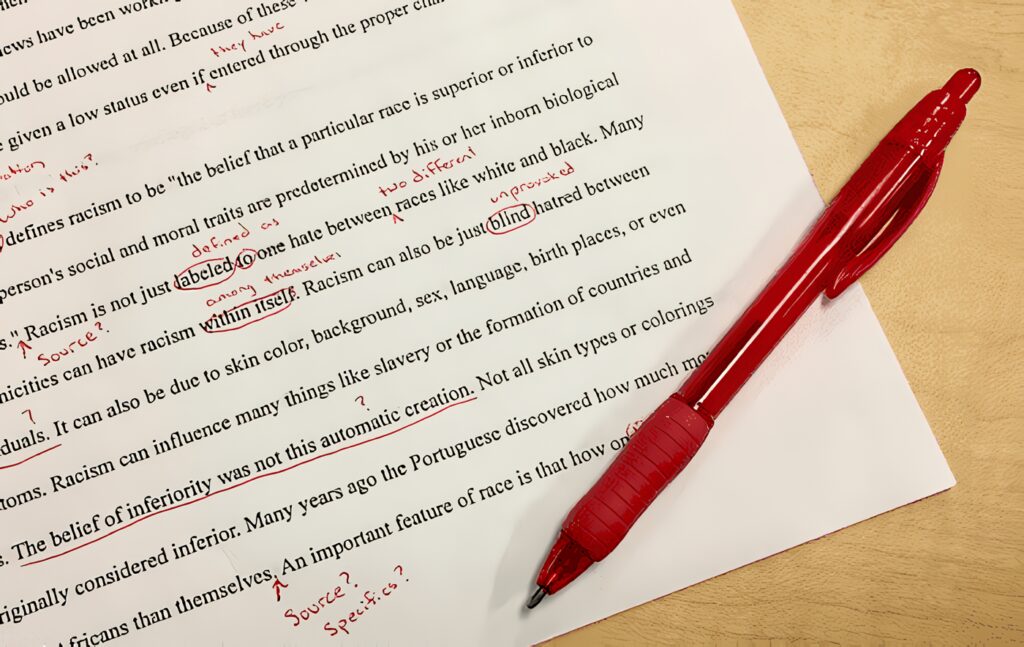 ews have been work
ould be allowed at all. Because of these
they have
e given a low status even if entered through the proper cha
who is this?
defines racism to be "the belief that a particular race is superior or inferior to
person's social and moral traits are predetermined by his or her inborn biological
defined as two different
s." Racism is not just labeled to one hate between races like white and black. Many
Source? among themselves unprovoked
nicities can have racism within itself. Racism can also be just blind hatred between
?
duals. It can also be due to skin color, background, sex, language, birth places, or even
toms. Racism can influence many things like slavery or the formation of countries and
?
s. The belief of inferiority was not this automatic creation. Not all skin types or colorings
riginally considered inferior. Many years ago the Portuguese discovered how much mo
Africans than themselves. An important feature of race is that how on
Source?
Specifics?